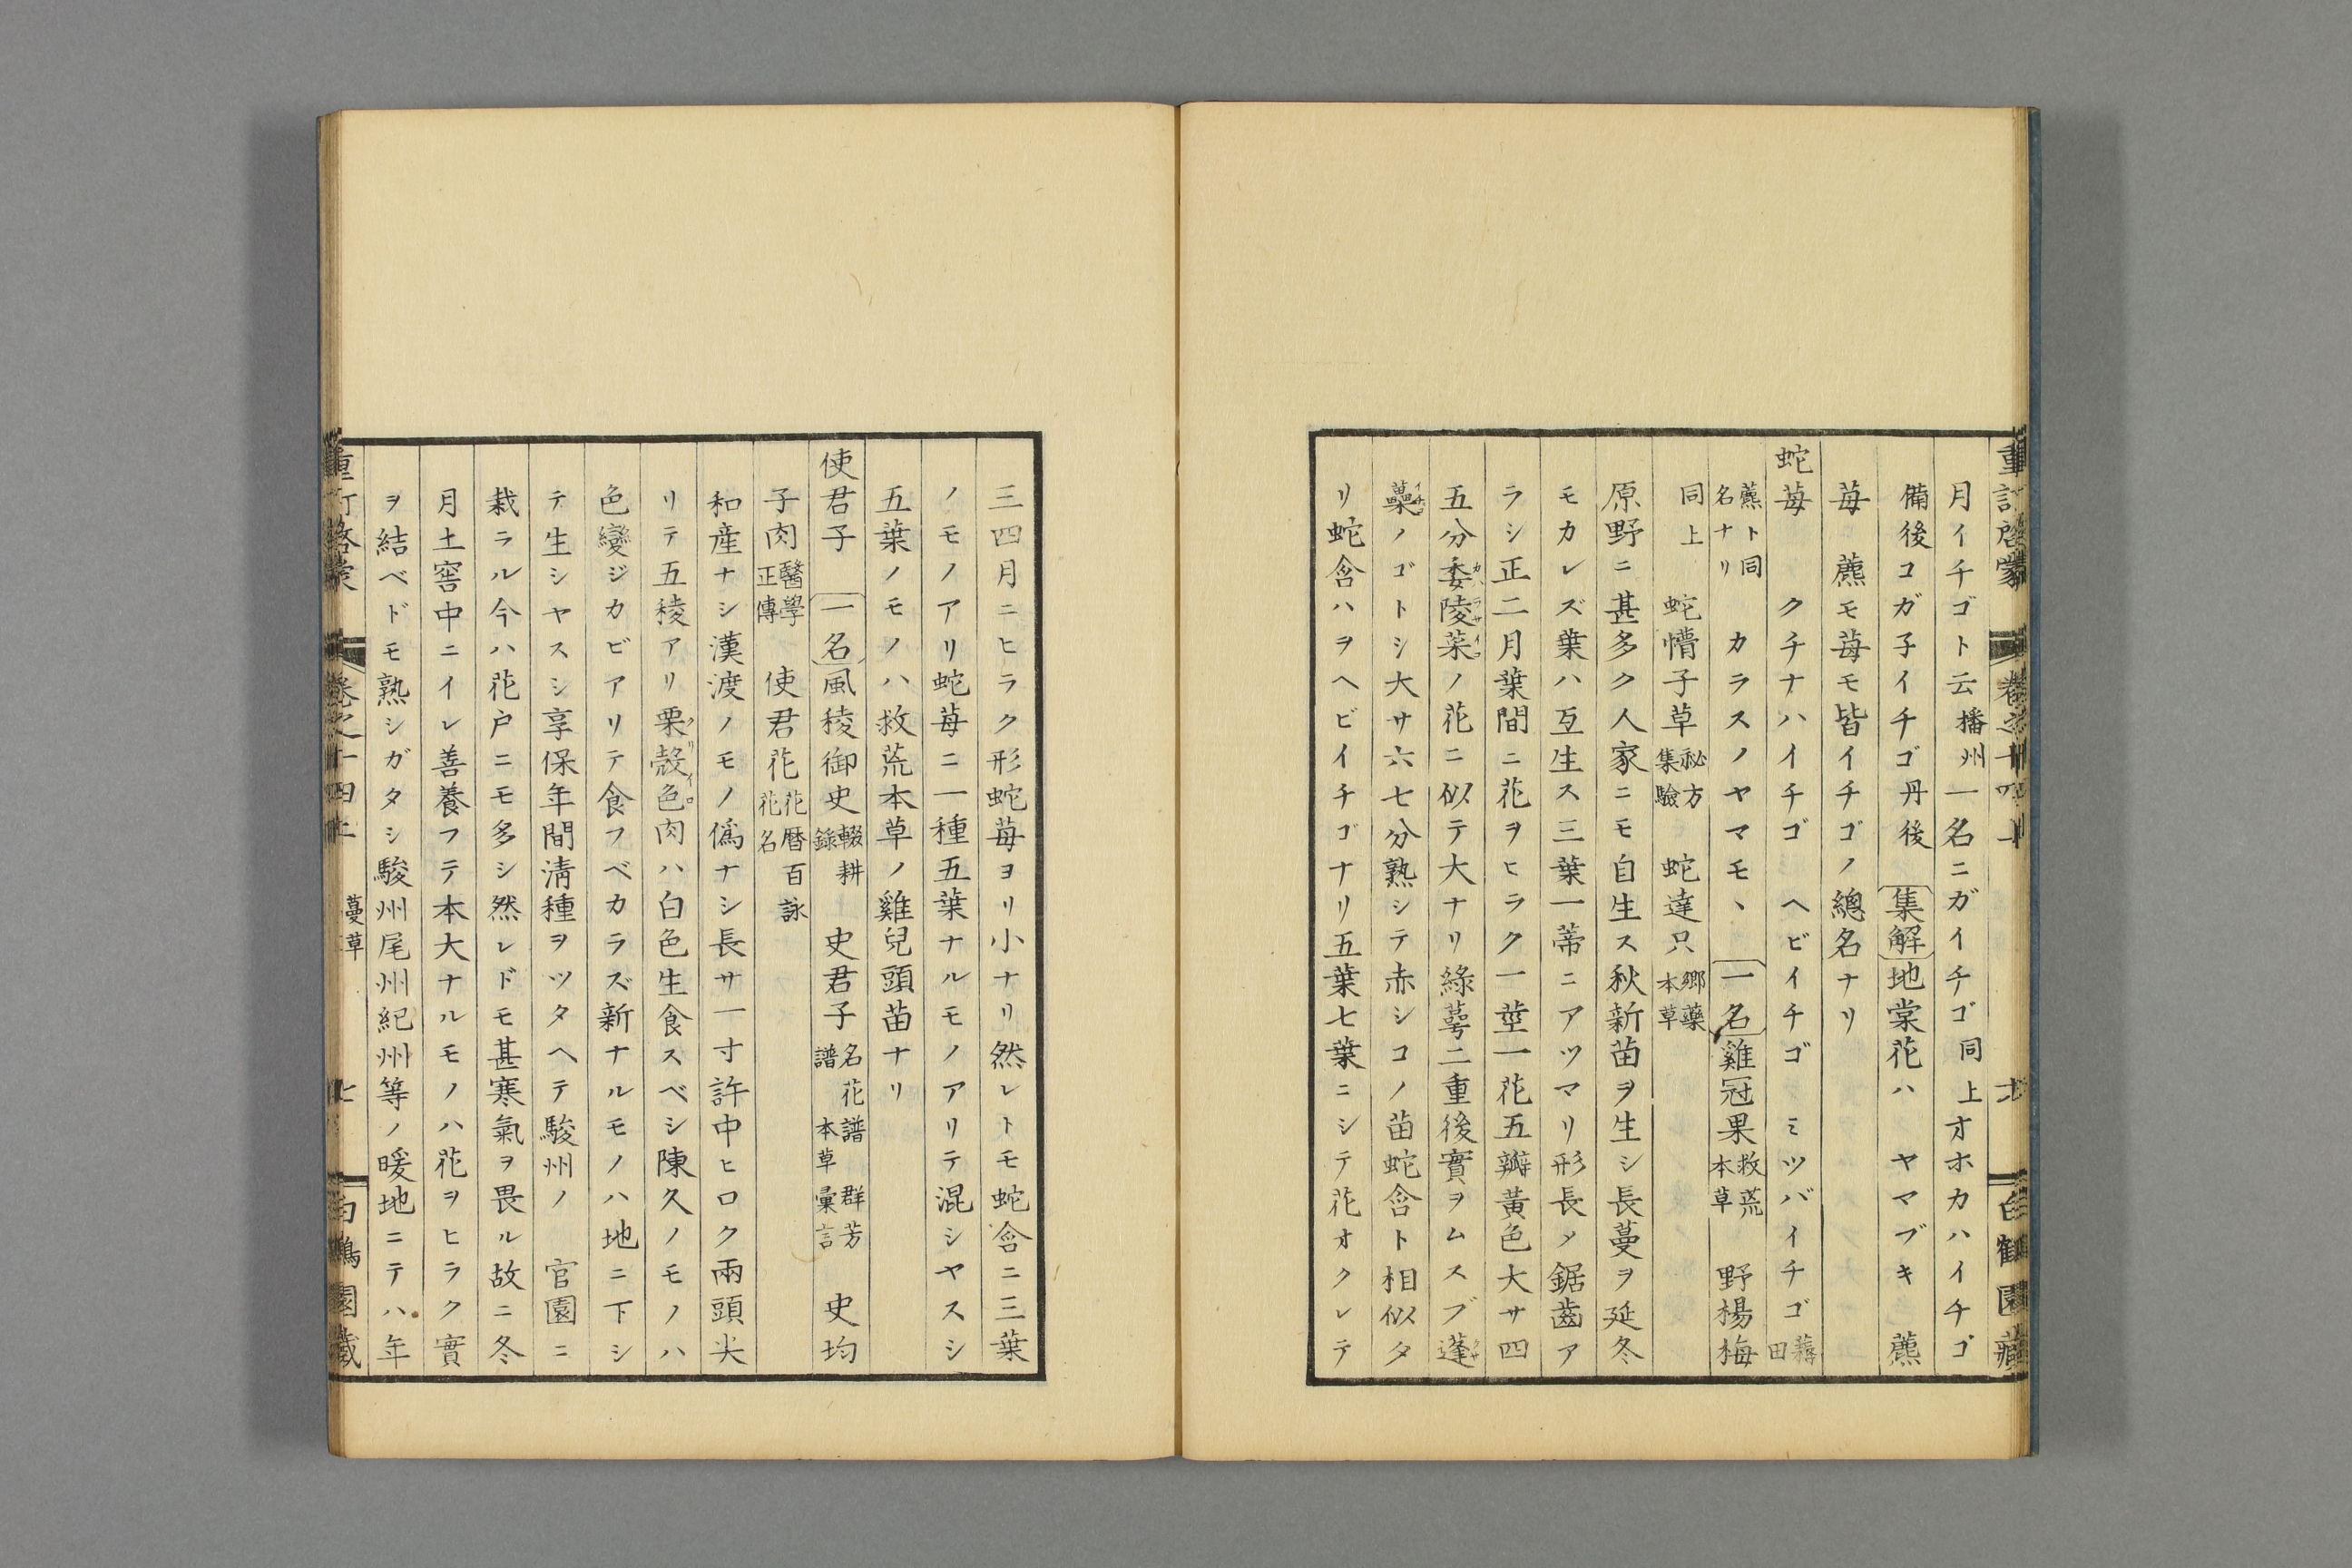 月イチゴト云播州一名ニガイチゴ同上オホカハイチゴ
備後コガ子イチゴ丹後 集解地棠花ハ ヤマブキ 藨
苺 藨モ苺モ皆イチゴノ總名ナリ
蛇苺 クチナハイチゴ ヘビイチゴ ミツバイチゴ蓐田
藨ト同名ナリ カラスノヤマモヽ 一名雞冠果救荒本草 野楊梅
同上 蛇䕞子草秘方集驗 蛇達只郷藥本草
原野ニ甚多ク人家ニモ自生ス秋新苗ヲ生シ長蔓ヲ延冬
モカレズ葉ハ互生ス三葉一蒂ニアツマリ形長メ鋸齒ア
ラシ正二月葉間ニ花ヲヒラク一莖一花五瓣黃色大サ四
五分委陵菜ノ花ニ似テ大ナリ綠萼二重後實ヲムスブ蓬
虆ノゴトシ大サ六七分熟シテ赤シコノ苗蛇含ト相似タ
リ蛇含ハヲヘビイチゴナリ五葉七葉ニシテ花オクレテ
三四月ニヒラク形蛇苺ヨリ小ナリ然レトモ蛇含ニ三葉
ノモノアリ蛇苺ニ一種五葉ナルモノアリテ混シヤスシ
五葉ノモノハ救荒本草ノ雞兒頭苗ナリ
使君子 一名風稜御史輟耕錄 史君子名花譜 群芳譜 本草彙言 史均
子肉醫學正傳 使君花花曆百詠花名
和産ナシ漢渡ノモノ僞ナシ長サ一寸許中ヒロク兩頭尖
リテ五稜アリ栗殼色肉ハ白色生食スベシ陳久ノモノハ
色變ジカビアリテ食フベカラズ新ナルモノハ地ニ下シ
テ生シヤスシ享保年間淸種ヲツタヘテ駿州ノ 官園ニ
栽ラル今ハ花戸ニモ多シ然レドモ甚寒氣ヲ畏ル故ニ冬
月土窖中ニイレ善養フテ本大ナルモノハ花ヲヒラク實
ヲ結ベドモ熟シガタシ駿州尾州紀州等ノ暖地ニテハ年
蔓草